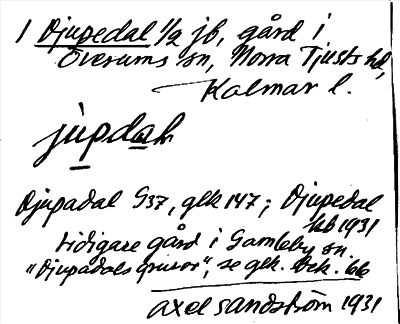 1 Djupedal 1/2 jb, gård i
Överums sn, Norra Tjusts hd,
Kalmar l.
jùpdaḥ
Djupadal S37, glk 147; Djupedal
kb 1931
tidigare gård i Gamleby sn.
"Djupadals gruvor", se glk. Bih. 66
Axel Sandström 1931